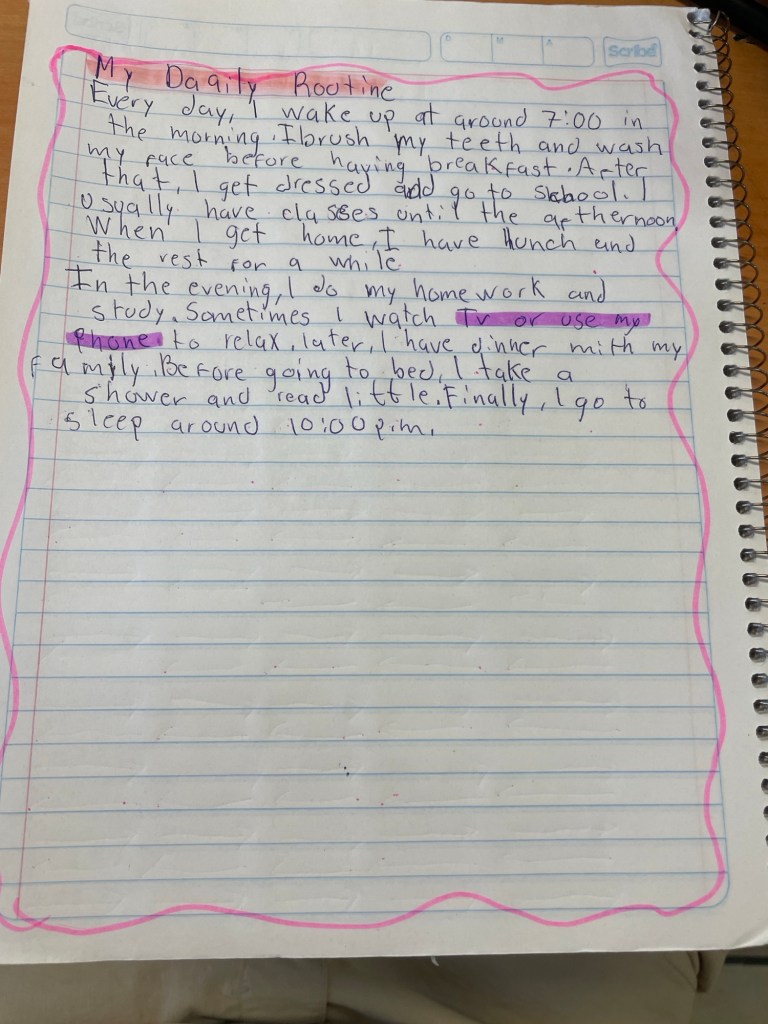 Scribe
D M A
Scribd
My Dagily Rootine
Every day, I wake up at around 7:00 in
the morning. I brush my teeth and wash
my face before having breakfast. After
that, I get dressed add go to Skhool. I
Usually have classes until the afthernoon
When I get home, I have lunch and
the rest for a while
In the evening, I do my home work and
study. Sometimes I watch Tv or use my
Phone to relax, later, I have dinner mith my
family. Before going to bed, I take a
shower and read little. Finally, I go to
sleep around 10:00 p.m.